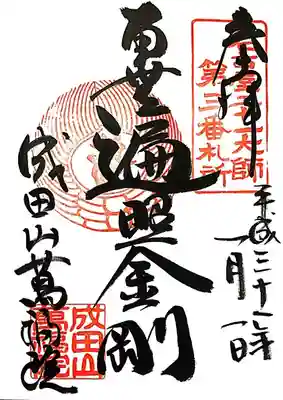 奉拝
第三番札所
平成三十一年
一月一日
南無遍照金剛
成田山萬福院
成田山
萬福院